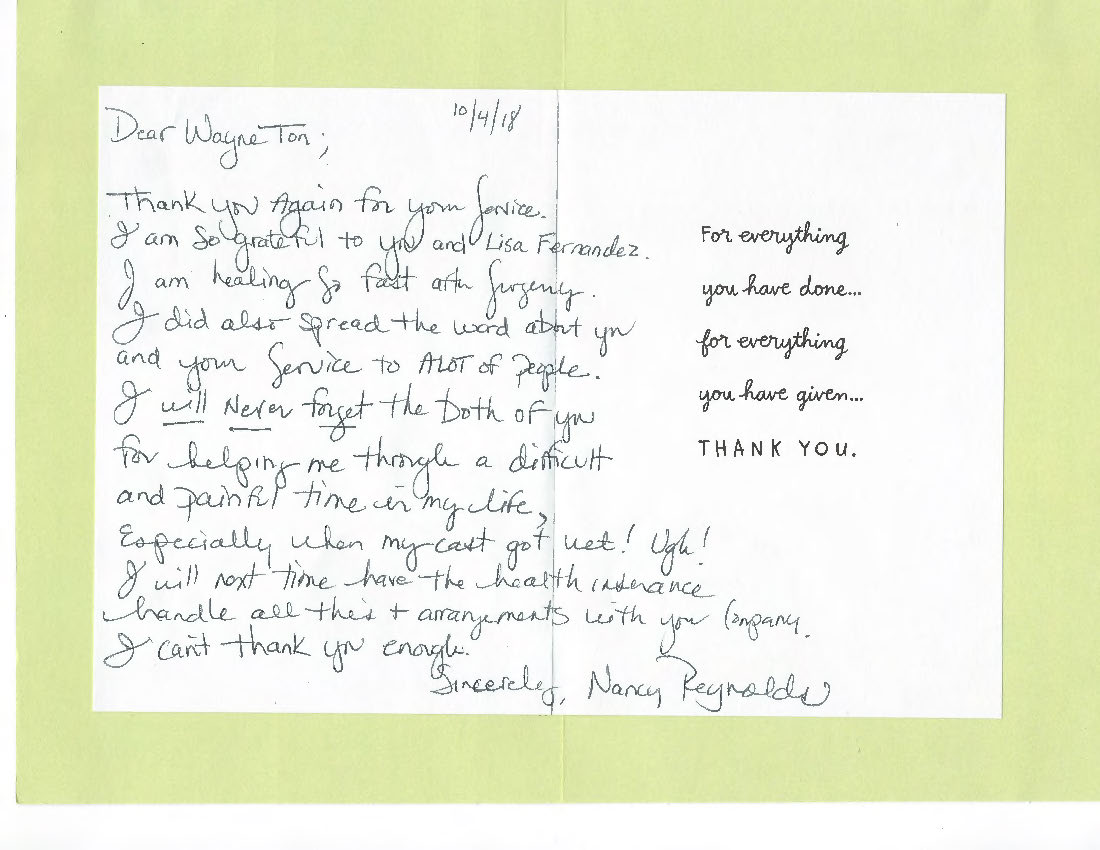 10/4/18
Dear Wayne Ton;
Thank you Again for your Service.
I am So grateful to you and Lisa Fernandez.
I am healing So fast after Surgery.
I did also spread the word about you
and your Service to ALOT of people.
I will Never forget the both of you
for helping me through a difficult
and painful time in my life,
Especially when my cast got wet! Ugh!
I will next time have the health insurance
handle all this + arrangements with you Company.
I can't thank you enough.
Sincerely, Nancy Reynolds
For everything
you have done...
for everything
you have given...
THANK YOU.